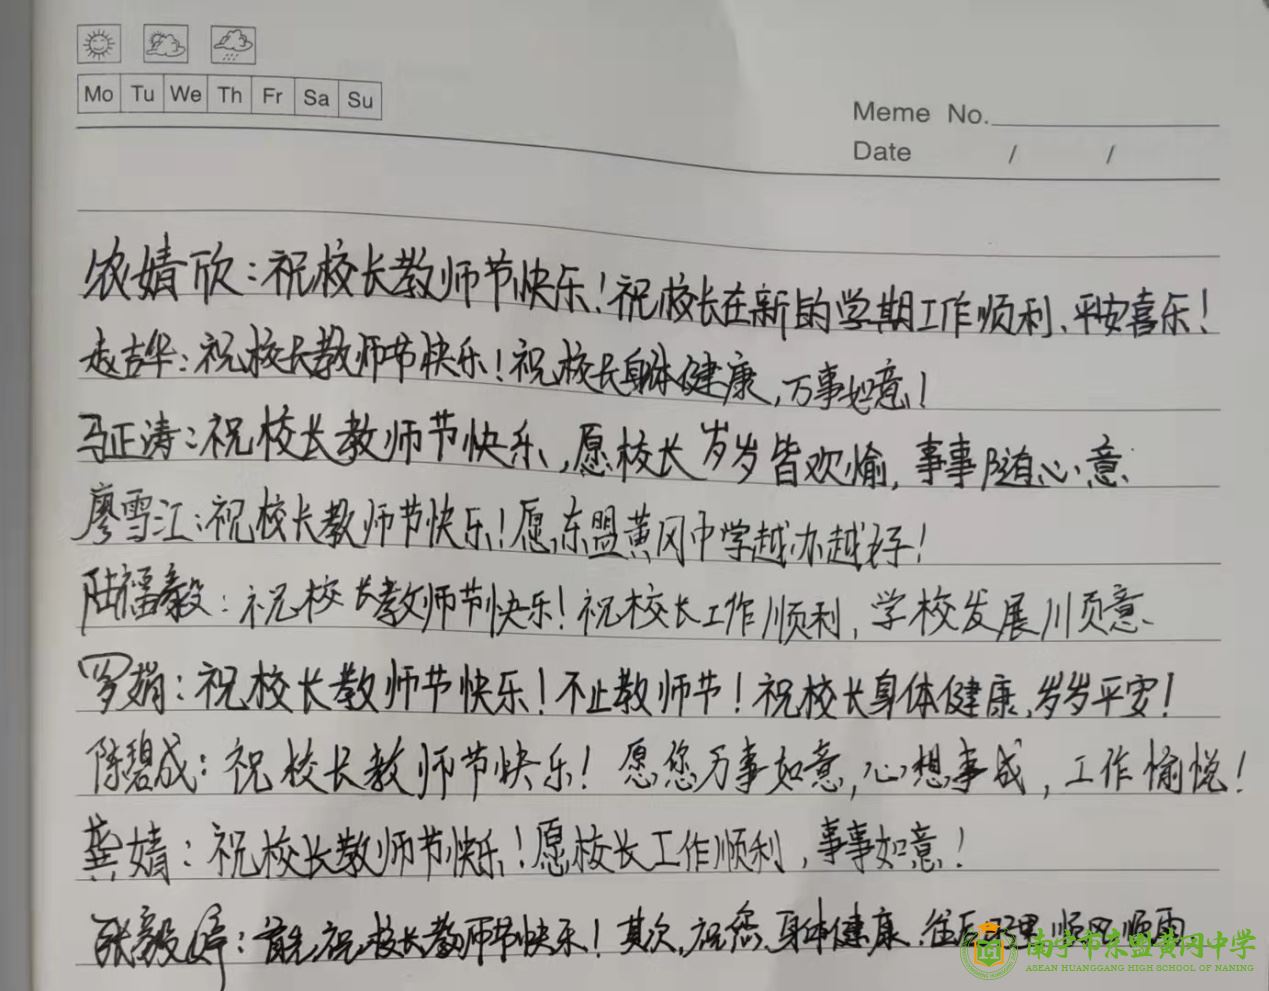 Mo Tu We Th Fr Sa Su
Meme No.
Date / /
农婧欣:祝校长教师节快乐!祝校长在新的学期工作顺利、平安喜乐!
赵吉华:祝校长教师节快乐!祝校长身体健康,万事如意!
马正涛:祝校长教师节快乐,愿校长岁岁皆欢愉,事事随心意
廖雪江:祝校长教师节快乐!愿东盟黄冈中学越办越好!
陆福毅:祝校长教师节快乐!祝校长工作顺利,学校发展顺意
罗娟:祝校长教师节快乐!不止教师节!祝校长身体健康,岁岁平安!
陈碧成:祝校长教师节快乐!愿您万事如意,心想事成,工作愉悦!
龚婧:祝校长教师节快乐!愿校长工作顺利,事事如意!
张毅婷:首先,祝校长教师节快乐!其次,祝您身体健康,往后 顺风顺雨
南宁市东盟黄冈中学
ASEAN HUANGGANG HIGH SCHOOL OF NANING